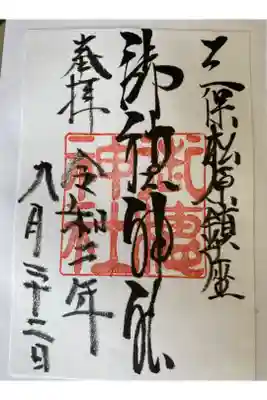 三保松原鎮座
御穂神社
奉拝
令和二年
九月二十二日